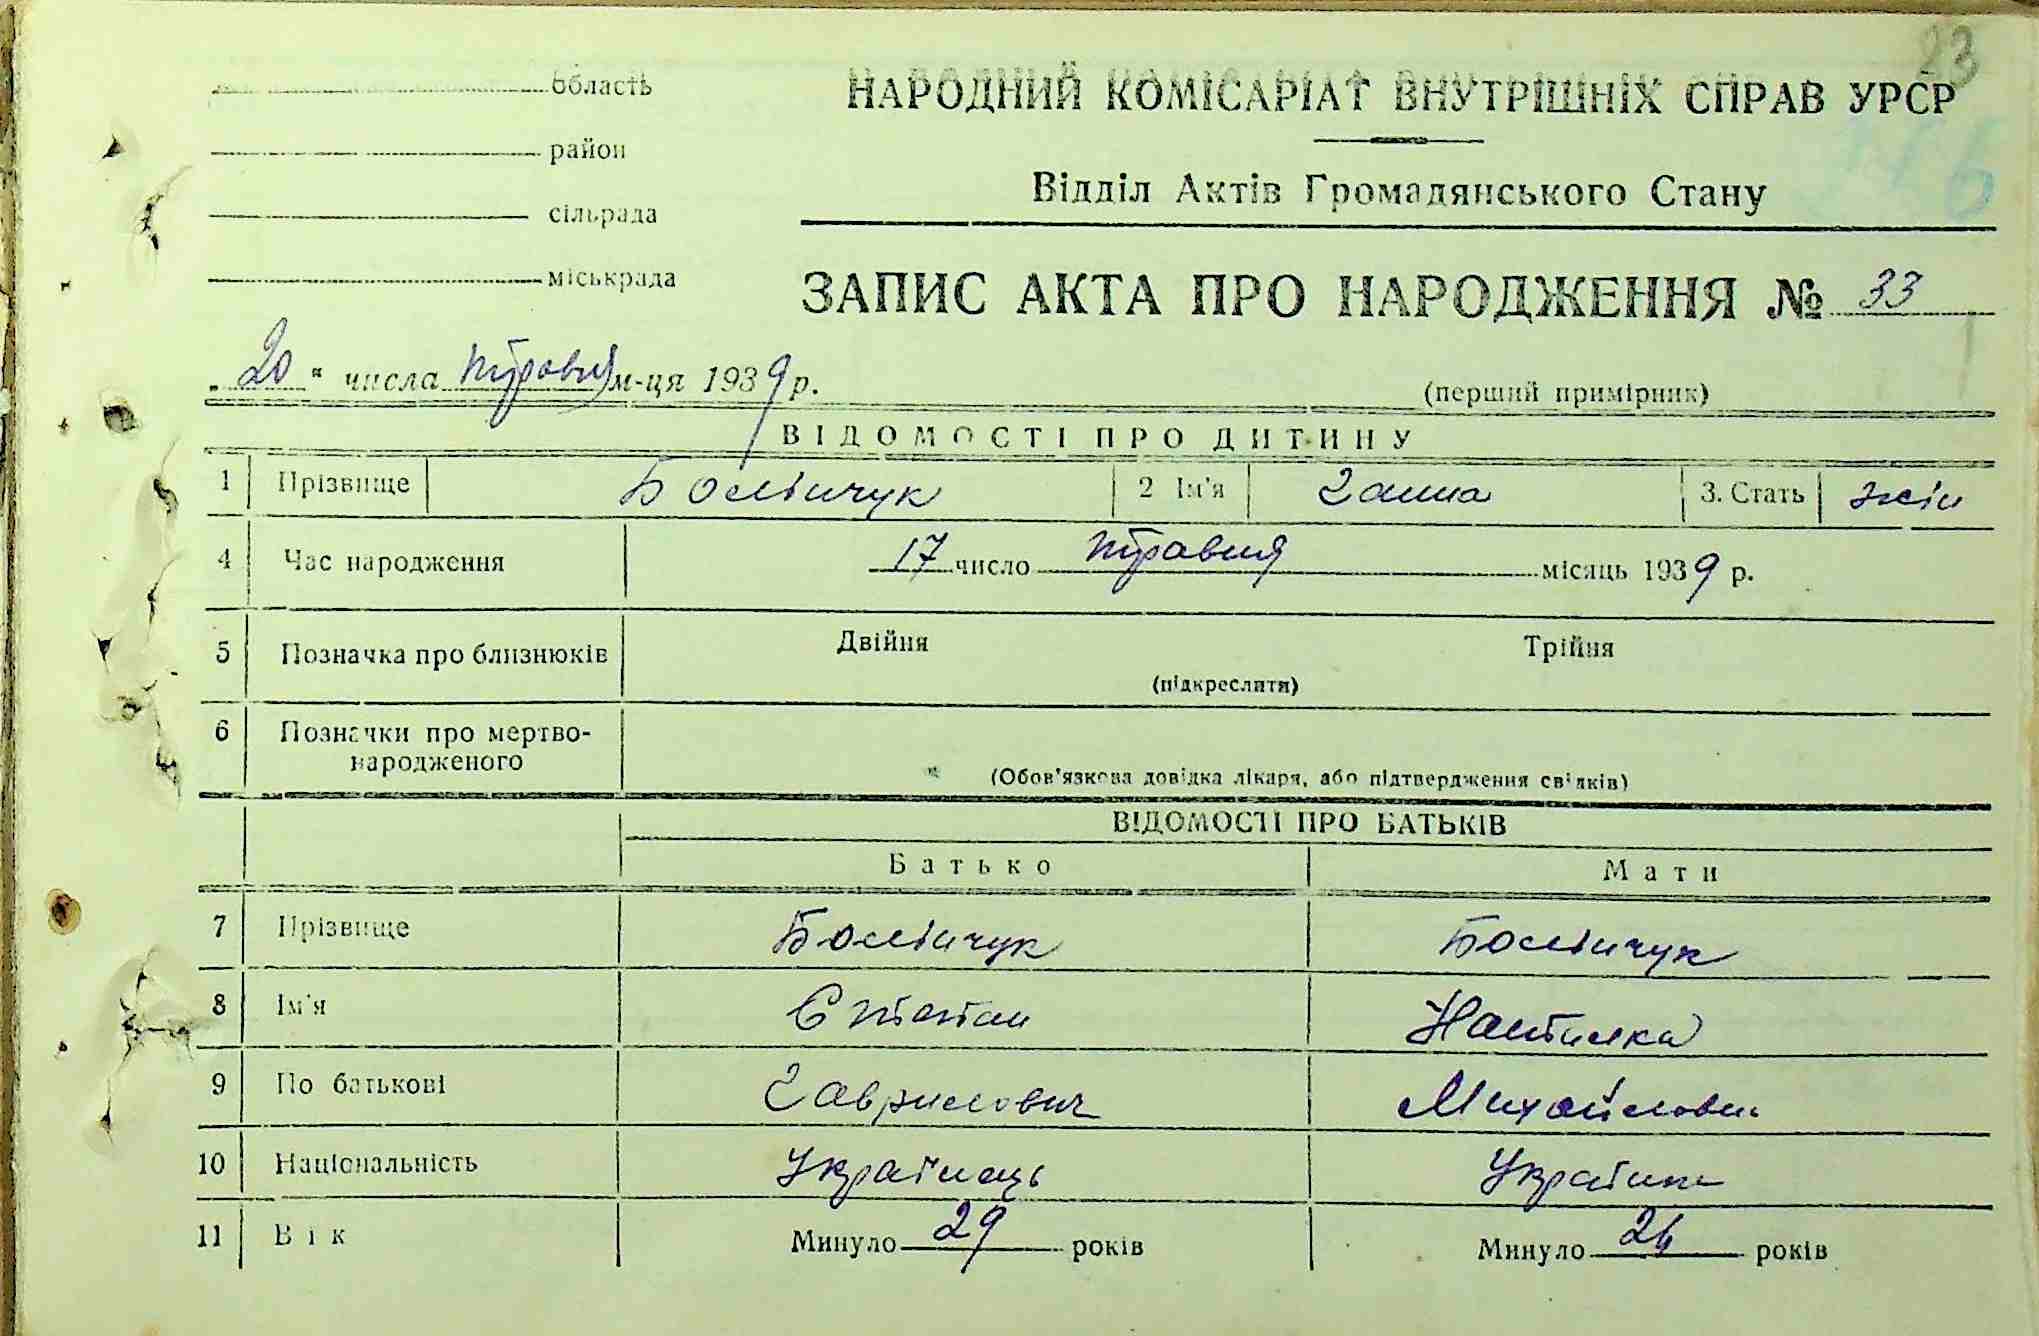 23
область
НАРОДНИЙ КОМІСАРІАТ ВНУТРІШНІХ СПРАВ УРСР
район
Відділ Актів Громадянського Стану
сільрада
міськрада
ЗАПИС АКТА ПРО НАРОДЖЕННЯ № 33
„20“ числа травня м-ця 1939 р.
(перший примірник)
ВІДОМОСТІ ПРО ДИТИНУ
1 Прізвище Болінчук 2 Ім'я Ганна 3. Стать жін
4 Час народження 17 число травня місяць 1939 р.
5 Позначка про близнюків Двійня Трійня
(підкреслити)
6 Позначки про мертво-
народженого
(Обов'язкова довідка лікаря, або підтвердження свідків)
ВІДОМОСТІ ПРО БАТЬКІВ
Батько Мати
7 Прізвище Болінчук Болінчук
8 Ім'я Степан
9 По батькові Гаврилович Михайловн
10 Національність Українець Українк
11 Вік Минуло 29 років Минуло 24 років